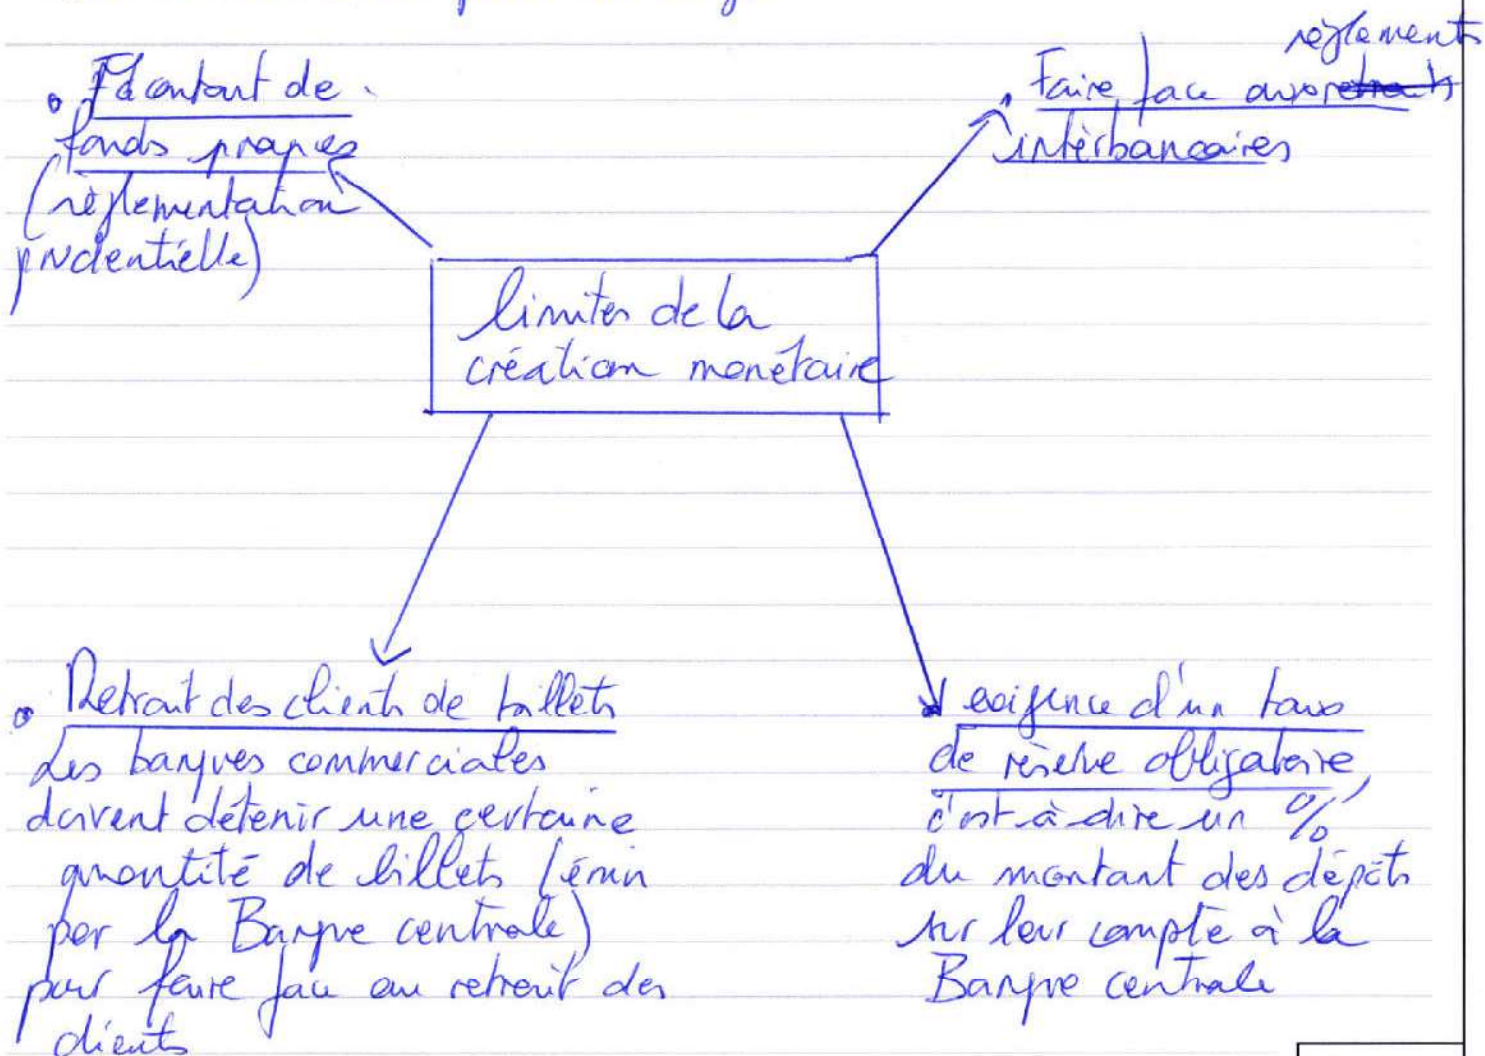 • Montant de
fonds propres
(règlementation
prudentielle)
règlements
• Faire face aux retraits
interbancaires
limites de la
création monétaire
• Retrait des clients de billets
Les banques commerciales
doivent détenir une certaine
quantité de billets (émis
par la Banque centrale)
pour faire face au retrait des
clients
exigence d'un taux
de réserve obligatoire,
c'est-à-dire un %
du montant des dépôts
sur leur compte à la
Banque centrale